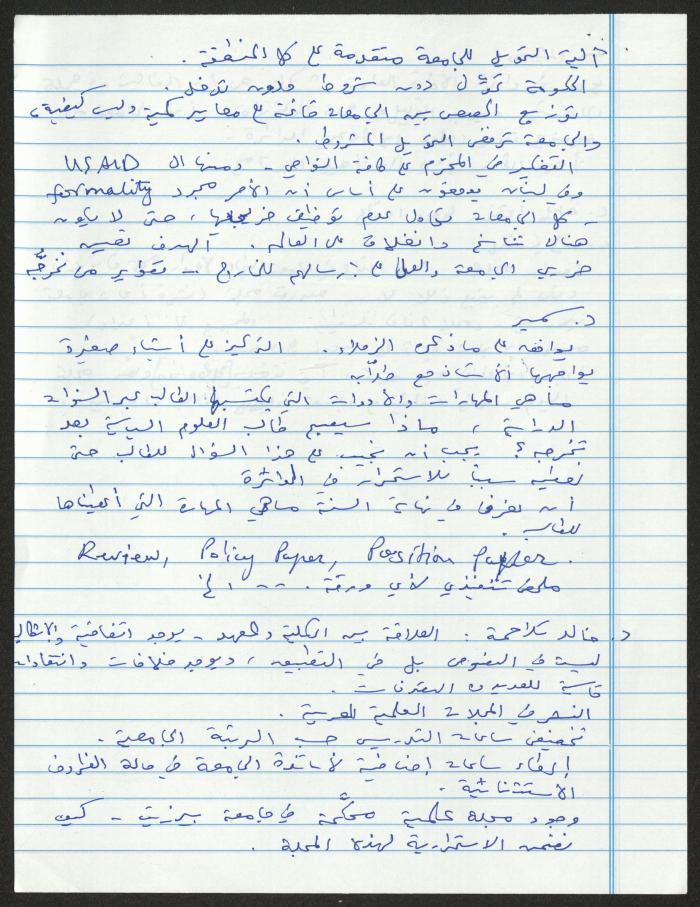 آلية التمويل للجامعة متقدمة على كل المنطقة.
الحكومة تموّل دون شروط وبدون تدخل.
توزيع الحصص بين الجامعات قائمة على معايير كمية وليس كيفية،
والجامعة ترفض التمويل المشروط.
التفكير في المحترم على كافة النواحي - ومنها ال USAID
وفي لبنان يوقعون على أساس أن الأمر مجرد formality
- كل الجامعات تحاول عدم توظيف خريجيها، حتى لا يكون
هنالك تناسخ وانغلاق على العالم. الهدف تعيين
خريجي الجامعة والعمل على إرسالهم للخارج - تقارير من تخرّجه
د. سمير
يوافق على ما ذكره الزملاء. التركيز على أشياء صغيرة
يواجهها الأستاذ مع طلابه
ما هي المهارات والأدوات التي يكتسبها الطالب عبر السنوات
الدراسية، ماذا سيصبح طالب العلوم السياسية بعد
تخرجه؟ يجب أن نجيب على هذا السؤال للطالب حتى
نعطيه سبباً للاستمرار في الدائرة
أن نعرف في نهاية السنة ما هي المهارة التي أعطيناها
للطالب.
Review, Policy Paper, Position Paper.
ملخص تنفيذي لأي ورقة. -- الخ
د. خالد تلاحمة: العلاقة بين الكلية والمعهد - يوجد اتفاقية والإشكال
ليست في النصوص بل في التطبيق، ويوجد خلافات وانتقادات
قاسية للعديد من التصرفات.
النشر في المجلات العلمية العربية.
تخفيض ساعات التدريس حسب الرتبة الجامعية.
إعطاء ساعات إضافية لأساتذة الجامعة في حالة الظروف
الاستثنائية.
وجود مجلة علمية محكَّمة في جامعة بيرزيت - كيف
نضمن الاستمرارية لهذه المجلة.